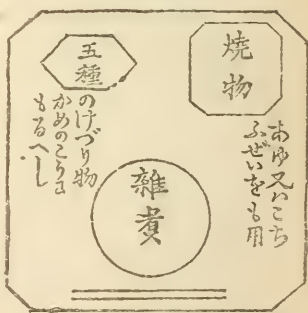 焼物
あゆ又ハこち
ふぜいをも用
五種
のけづり物
かめのこうニ
もるへし
雑煮